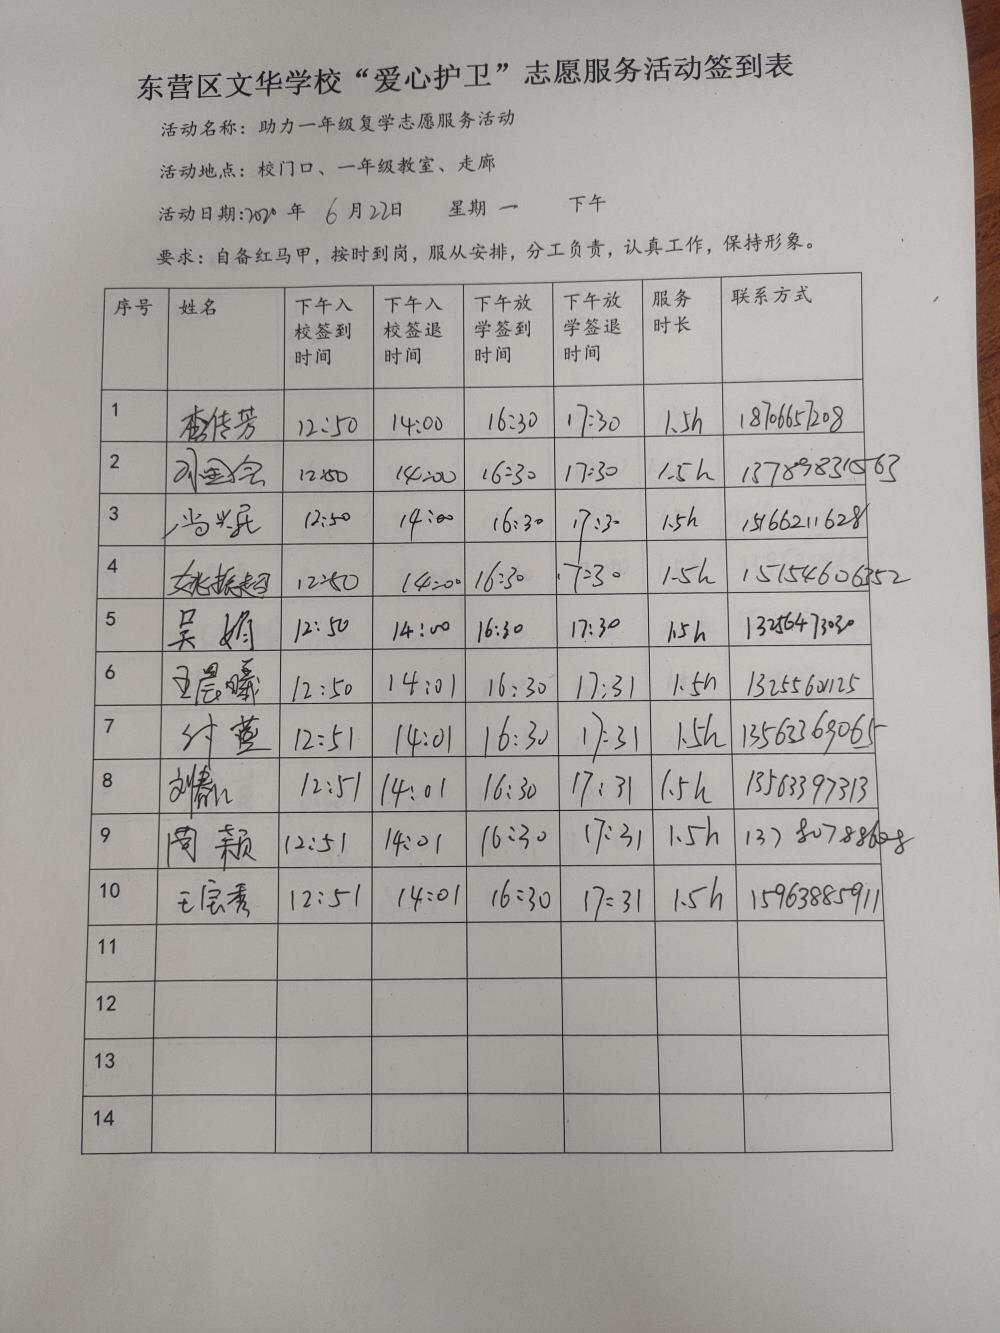 东营区文华学校“爱心护卫”志愿服务活动签到表
活动名称：助力一年级复学志愿服务活动
活动地点：校门口、一年级教室、走廊
活动日期:2020年 6月22日 星期一 下午
要求：自备红马甲，按时到岗，服从安排，分工负责，认真工作，保持形象。
序号 姓名 下午入校签到时间 下午入校签退时间 下午放学签到时间 下午放学签退时间 服务时长 联系方式
1 李传芳 12:50 14:00 16:30 17:30 1.5h 18706657208
2 12:50 14:00 16:30 17:30 1.5h
3 12:50 14:00 16:30 17:30 1.5h 15166211628
4 姚振超 12:50 14:00 16:30 17:30 1.5h
5 吴娟 12:50 14:00 16:30 17:30 1.5h 13256473030
6 王晨曦 12:50 14:01 16:30 17:31 1.5h 13255601125
7 付蕾 12:51 14:01 16:30 17:31 1.5h 13563369065
8 12:51 14:01 16:30 17:31 1.5h 13563397313
9 周颖 12:51 14:01 16:30 17:31 1.5h
10 王宝秀 12:51 14:01 16:30 17:31 1.5h 15963885911
11
12
13
14